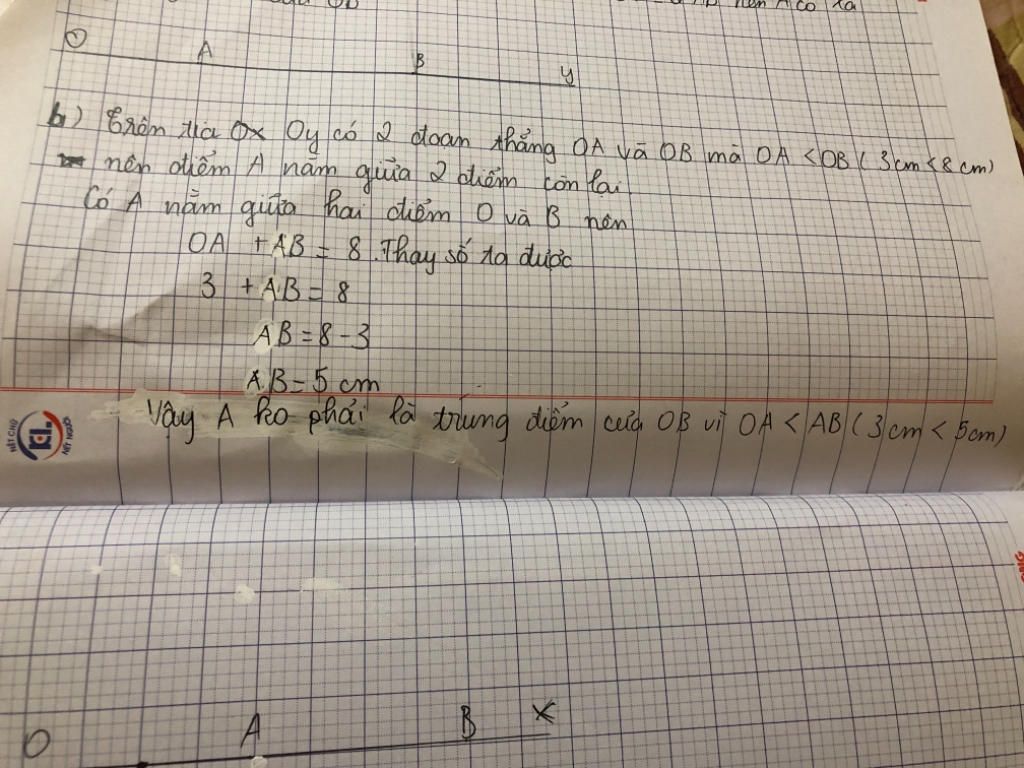 O A B y
b) Trên tia Ox Oy có 2 đoạn thẳng OA và OB mà OA < OB ( 3 cm < 8 cm)
nên điểm A nằm giữa 2 điểm còn lại
Có A nằm giữa hai điểm O và B nên
OA + AB = 8. Thay số ta được
3 + AB = 8
AB = 8 - 3
AB = 5 cm
Vậy A ko phải là trung điểm của OB vì OA < AB ( 3 cm < 5 cm)
NÉT CHỮ
KL
NẾT NGƯỜI
O A B x